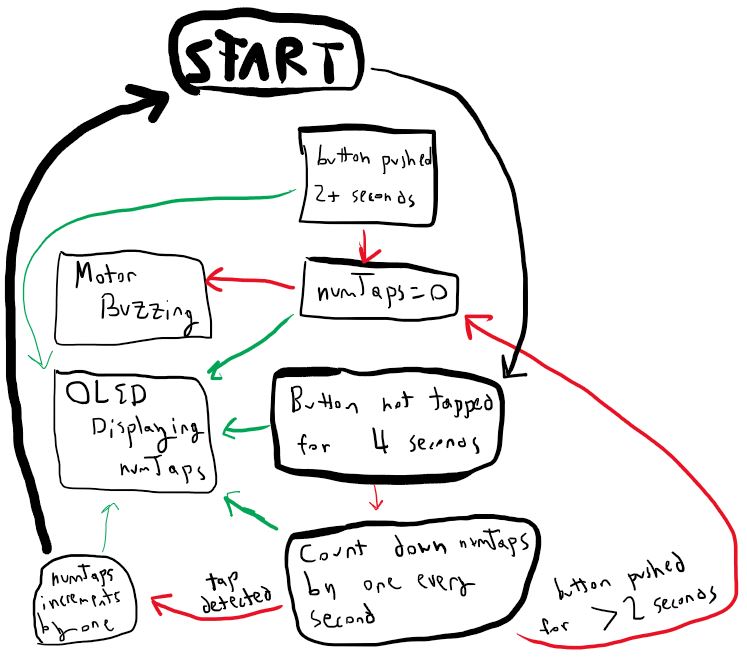 START
button pushed
2+ seconds
numTaps=0
Motor
Buzzing
OLED
Displaying
numTaps
Button not tapped
for 4 seconds
Count down numTaps
by one every
second
tap
detected
numTaps
increments
by one
button pushed
for >2 seconds